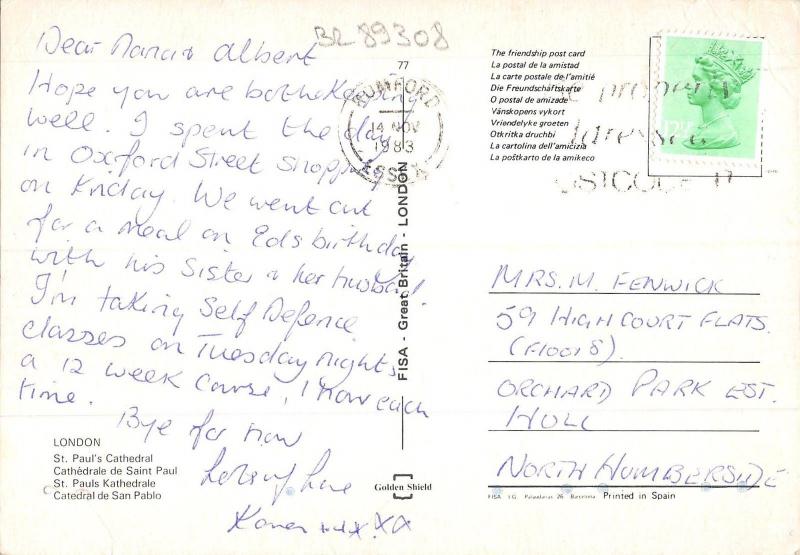 BR 89308
Dear Nana & Albert
Hope you are both keeping
well. I spent the day
in Oxford Street shopping
on Friday. We went out
for a meal on Eds birthday
with his Sister & her husband.
I'm taking Self Defence
classes on Tuesday nights,
a 12 week course, 1 hour each
time.
Bye for now
Lots of love
Karen xxx XX
LONDON
St. Paul's Cathedral
Cathédrale de Saint Paul
St. Pauls Kathedrale
Catedral de San Pablo
77
FISA - Great Britain - LONDON
Golden Shield
ROMFORD
14 NOV
1983
ESSEX
The friendship post card
La postal de la amistad
La carte postale de l'amitié
Die Freundschäftskarte
O postal de amizade
Vänskopens vykort
Vriendelyke groeten
Otkritka druchbi
La cartolina dell'amcizia
La poŝtkarto de la amikeco
MRS. M. FENWICK
59 HIGHCOURT FLATS.
(F10018).
ORCHARD PARK EST.
HULL
NORTH HUMBERSIDE
FISA I.G. Palaudarias 26 Barcelona Printed in Spain